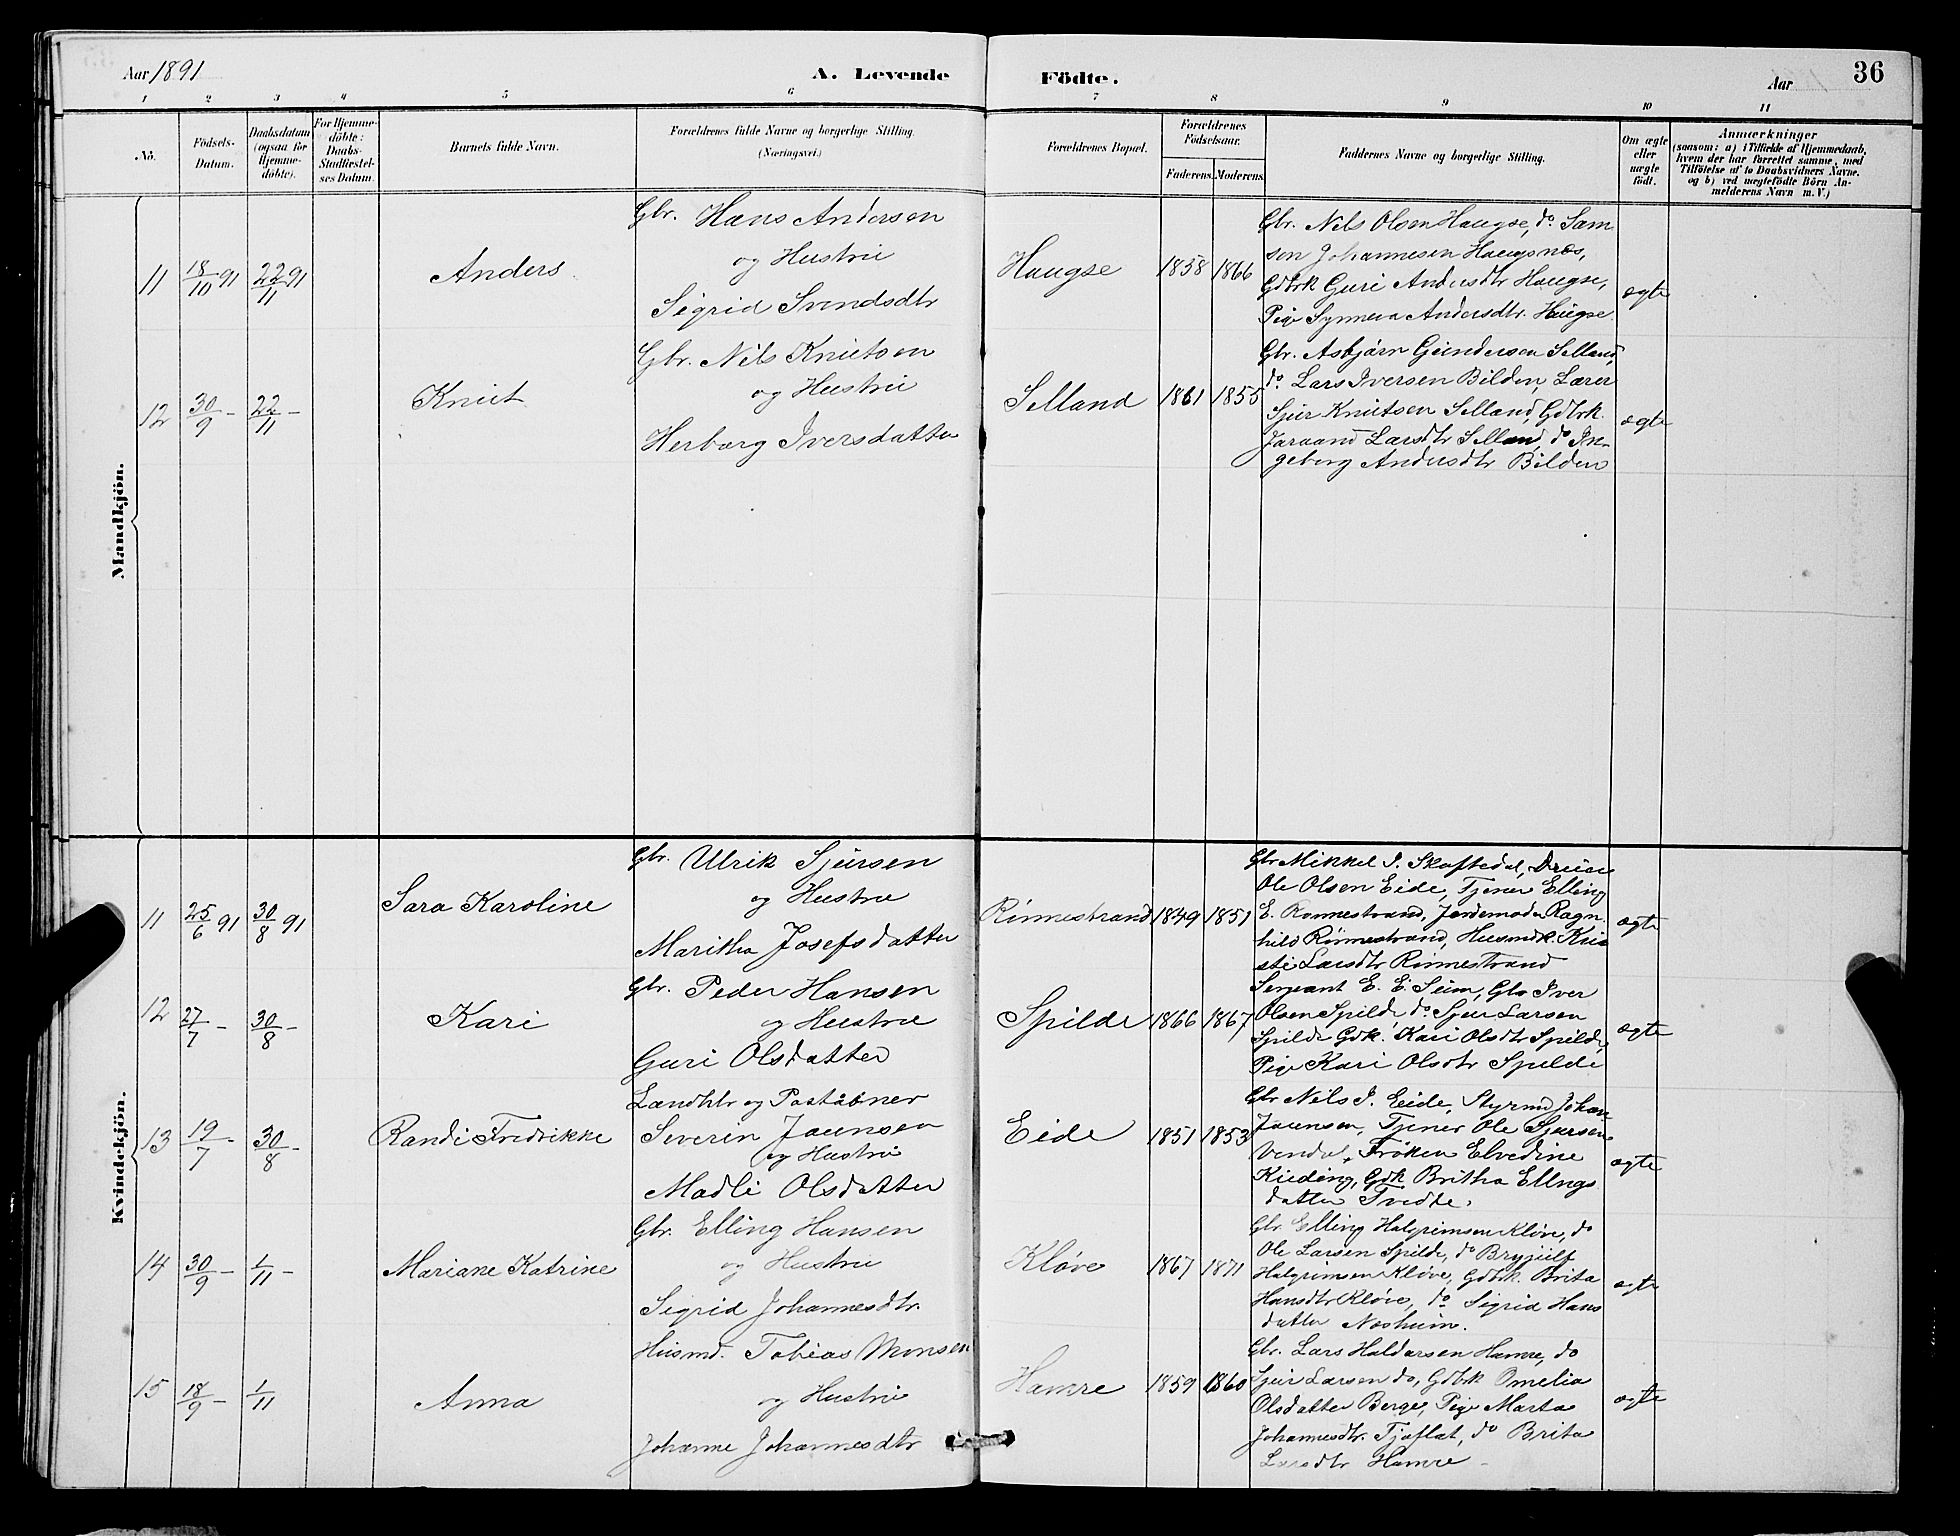 Aar 1891
A. Levende Födte.
Aar
36
1 2 3 4 5 6 7 8 9 10 11
No.
Födsels-Datum.
Daabsdatum (ogsaa for Hjemme-döbte).
For Hjemme-döbte: Daabs-Stadfæstel-ses Datum.
Barnets fulde Navn.
Forældrenes fulde Navne og borgerlige Stilling.
(Næringsvei.)
Forældrenes Bopæl.
Forældrenes Födselsaar.
Faderens. Moderens.
Faddernes Navne og borgerlige Stilling.
Om ægte eller uægte födt.
Anmærkninger
(saasom: a) i Tilfælde af Hjemmedaab, hvem der har forrettet samme, med Tilföielse af to Daabsvidners Navne, og b) ved uægtefödte Börn An-melderens Navn m. V.)
Mandkjön.
11
18/10 91
22/11 91
Anders
Gbr. Hans Andersen
og Hustru
Sigrid Svendsdtr
Haugse
1858
1866
Gbr. Nils Olsen Haugse, do Sam-
son Johannesen Haugsnæs,
Gdbrk Guri Andersdtr Haugse,
Pige Synneva Andersdtr. Haugse.
ægte
12
30/9 -
22/11 -
Knut
Gbr. Nils Knutsen
og Hustru
Herborg Iversdatter
Selland
1861
1855
Gbr. Asbjørn Gundersen Selland,
do Lars Iversen Bilden, Lærer
Sjur Knutsen Selland, Gdbrk.
Joraand Larsdtr Selland, do In-
geborg Andersdtr Bilden
ægte
Kvindekjön.
11
25/6 91
30/8 91
Sara Karoline
Gbr. Ulrik Sjursen
og Hustru
Maritha Josefsdatter
Rönnestrand
1849
1851
Gbr Mikkel I. Skaftedal,
Ole Olsen Eide, Tjener Elling
E. Rønnestrand, Jordemoder Ragn-
hild Rönnestrand, Husmdk. Kri-
sti Larsdtr Rönnestrand
ægte
12
27/7 -
30/8 -
Kari
Gbr. Peder Hansen
og Hustru
Guri Olsdatter
Spilde
1866
1867
Sergeant E. E. Seim, Gbr Iver
Olsen Spilde do Sjur Larsen
Spilde Gdk. Kari Olsdtr Spilde,
Pige Kari Olsdtr Spilde
ægte
13
19/7 -
30/8 -
Randi Fredrikke
Landhlr og Poståbner
Severin Jaunsen
og Hustru
Madli Olsdatter
Eide
1851
1853
Gbr Nils I. Eide, Styrmd Johan
Jaunsen, Tjener Ole Sjursen
Vendal, Frøken Elvedine
Gdk Britha Ellings
datter Tvedte.
ægte
14
30/9 -
1/11 -
Mariane Katrine
Gbr. Elling Hansen
og Hustru
Sigrid Johannesdtr.
Kløve
1867
1871
Gbr Elling Halgrimsen Kløve, do
Ole Larsen Spilde, do Brynjulf
Halgrimsen Kløve, Gdbrk. Brita
Hansdtr Kløve, do Sigrid Hans
datter Nesheim.
ægte
15
18/9 -
1/11
Anna
Husmd. Tobias Monsen
og Hustru
Johanne Johannesdtr
Hamre
1859
1860
Gbr. Lars Haldorsen Hamre, do
Sjur Larsen do, Gdbrk Omelia
Olsdatter Berge, Pige Marta
Johannesdtr. Tjoflat, do Brita
Larsdtr Hamre -
ægte